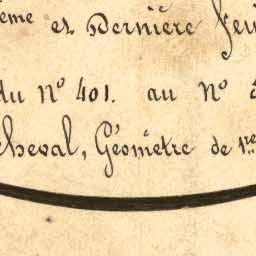 ème et Dernière Feui
du N° 401. au N°
Cheval, Géomètre de 1re